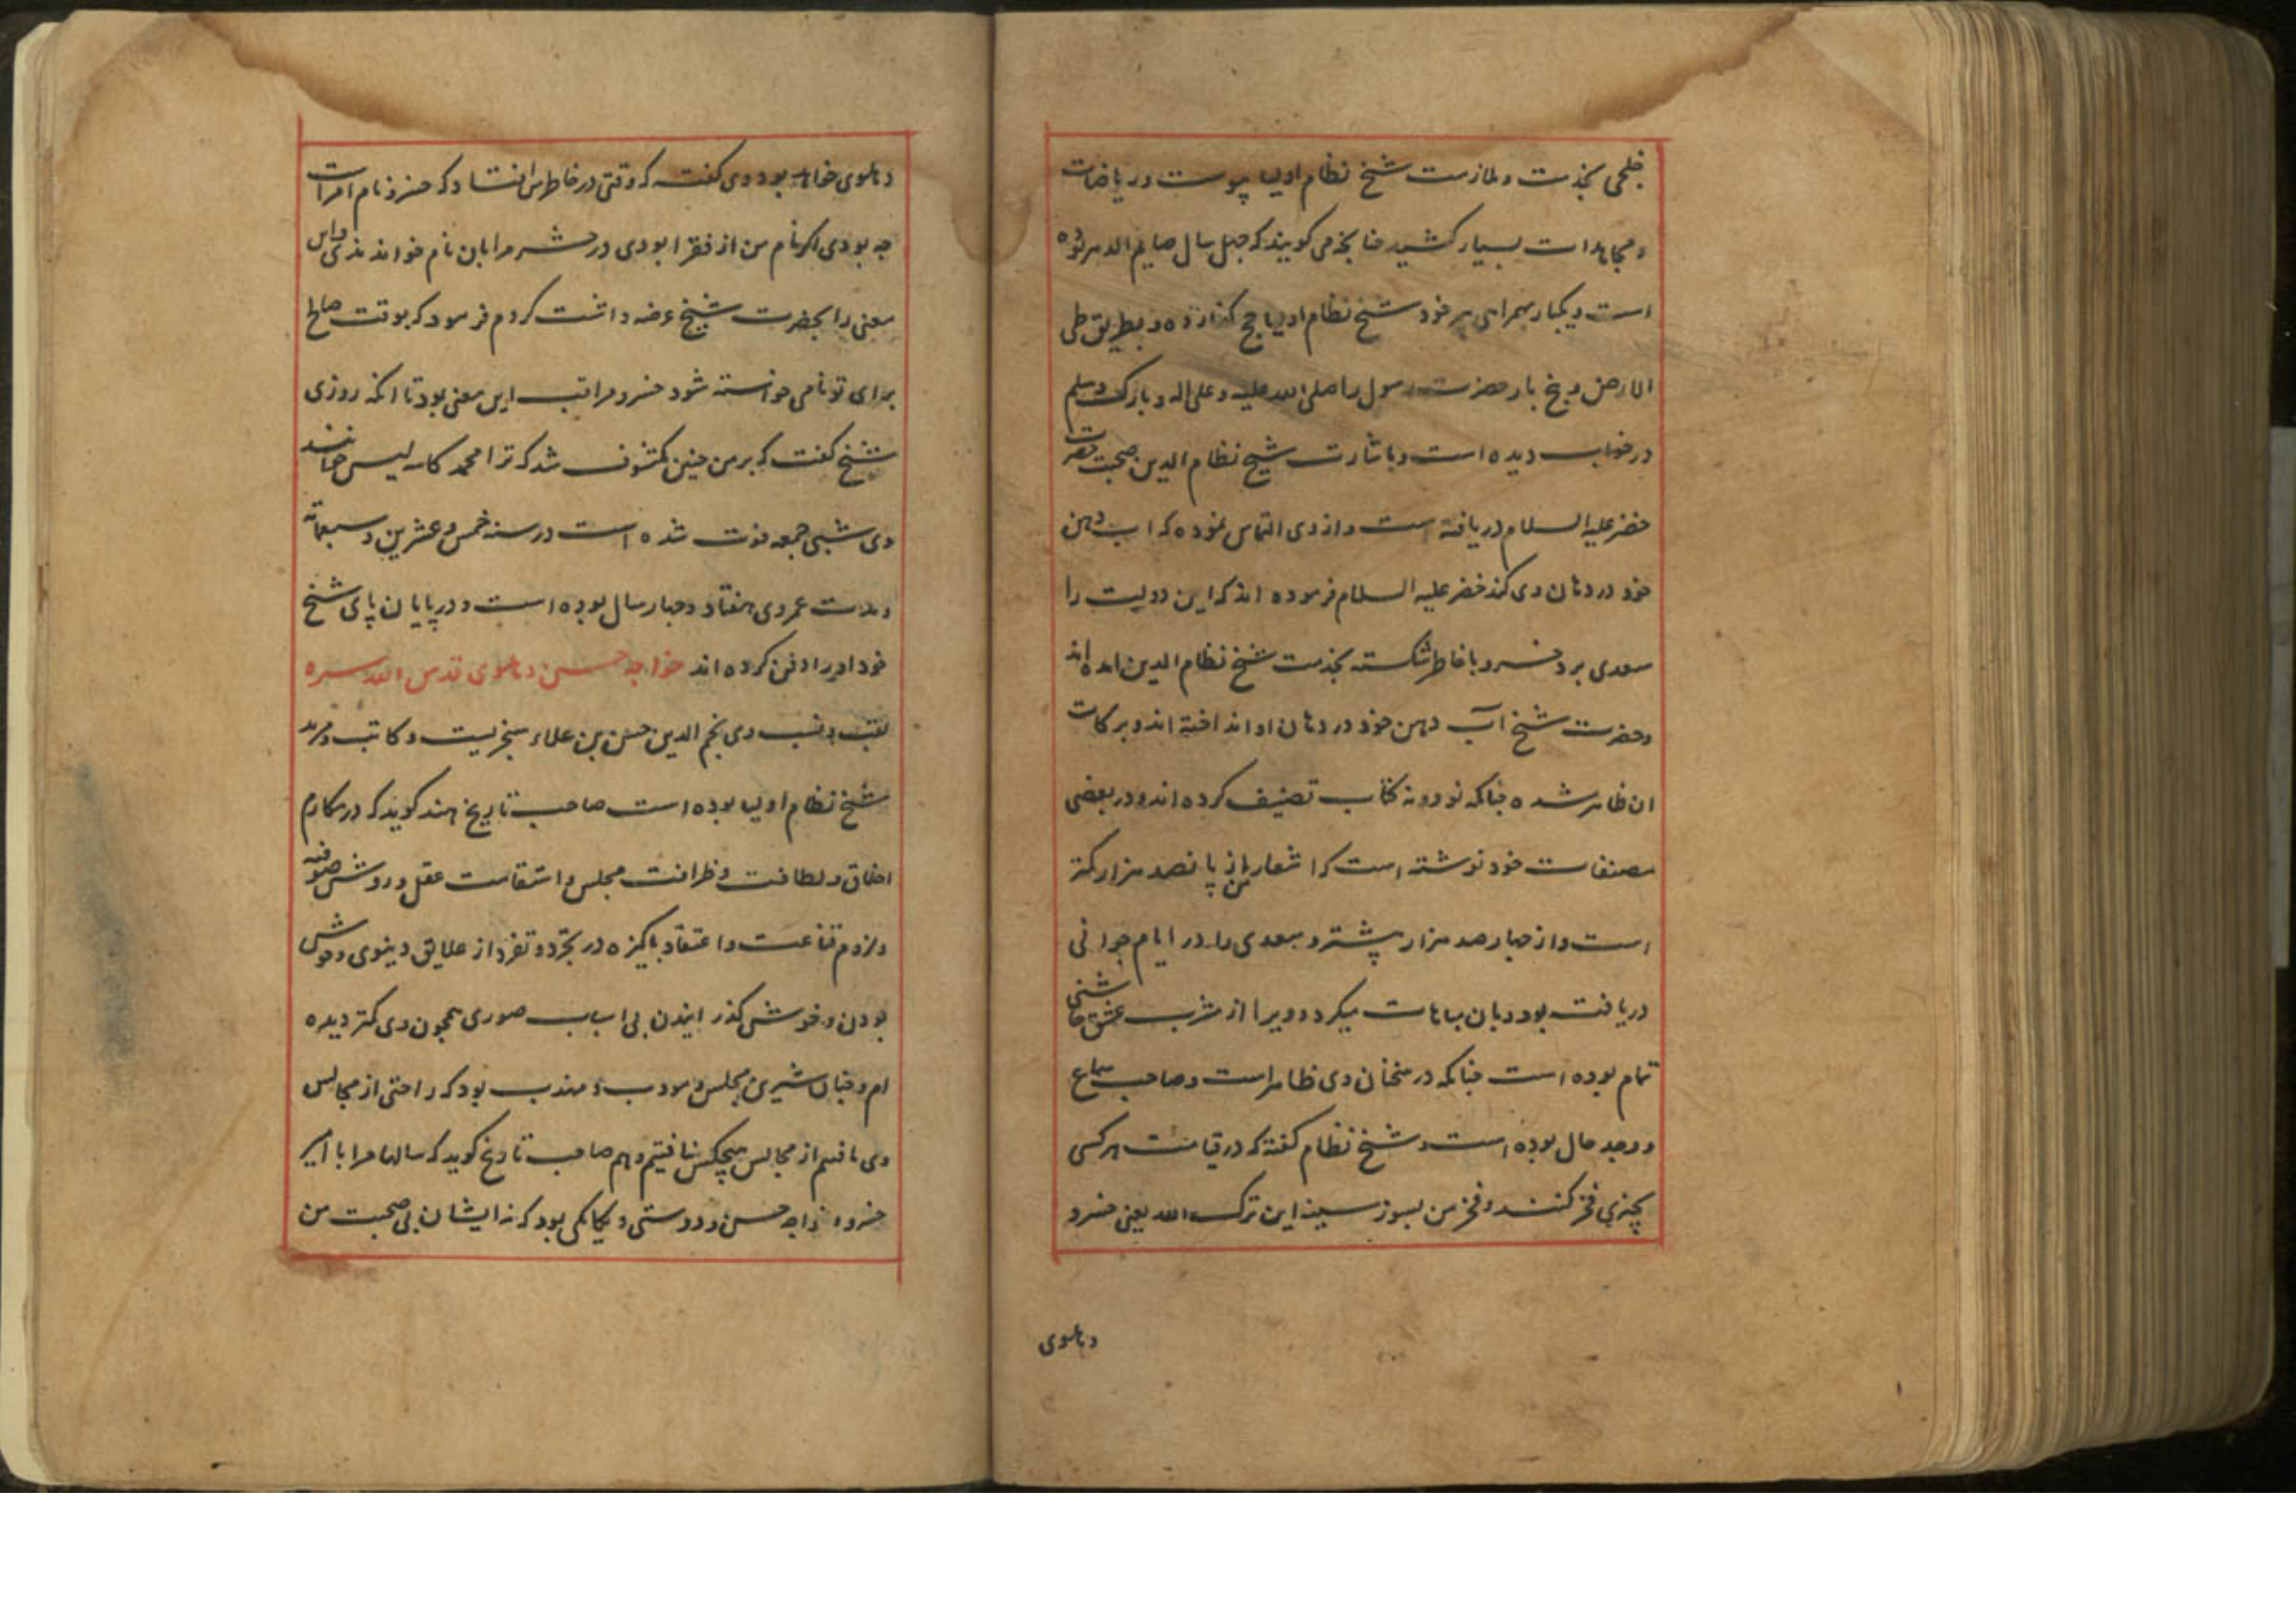 خلجی بخدمت و ملازمت شیخ نظام اولیا پیوست و ریاضات
و مجاهدات بسیار کشید چنانچه می گویند که چهل سال صایم الدهر بوده
است و یکبار بهمراهی پیر خود شیخ نظام اولیا حج گذارده و بطریق طی
الارض و پنج بار حضرت رسول را صلی الله علیه و علی اله و بارک و سلم
در خواب دیده است و باشارت شیخ نظام الدین صحبت حضرت
خضر علیه السلام دریافته است و از وی التماس نموده که اب دهن
خود در دهان وی کند خضر علیه السلام فرموده اند که این دولت را
سعدی برد خسرو با خاطر شکسته بخدمت شیخ نظام الدین امده اند
و حضرت شیخ آب دهن خود در دهان او انداخته اند و برکات
ان ظاهر شده چنانکه نود و نه کتاب تصنیف کرده اند و در بعضی
مصنفات خود نوشته است که اشعار من از پانصد هزار کمتر
است و از چهار صد هزار بیشتر و سعدی را در ایام جوانی
دریافته بود و بان مباهات میکرد و ویرا از مشرب عشق چاشنی
تمام بوده است چنانکه در سخنان وی ظاهر است و صاحب سماع
و وجد حال بوده است و شیخ نظام گفته که در قیامت هر کسی
بچیزی فخر کنند و فخر من بسوز سینه این ترک الله یعنی خسرو
دهلوی
دهلوی خواهد بود وی گفت که وقتی در خاطرم افتاد که خسرو نام امراست
چه بودی اگر نام من از فقرا بودی در حشر مرا بان نام خواندندی و این
معنی را بحضرت شیخ عرضه داشت کردم فرمود که بوقت صالح
برای تو نامی خواسته شود خسرو مراقب این معنی بود تا انکه روزی
شیخ گفت که بر من چنین مکشوف شد که ترا محمد کاسه لیس خوانند
وی شبی جمعه فوت شده است در سنه خمس و عشرین و سبعمائه
و مدت عمر وی هفتاد و چهار سال بوده است و در پایان پای شیخ
خود او را دفن کرده اند خواجه حسن دهلوی قدس الله سره
لقب و نسب وی نجم الدین حسن بن علاء سنجریست و کاتب و مرید
شیخ نظام اولیا بوده است صاحب تاریخ هند گوید که در مکارم
اخلاق و لطافت و ظرافت مجلس و استقامت عقل و روش صوفیه
و لزوم قناعت و اعتقاد پاکیزه در تجرد و تفرد از علایق دنیوی و خوش
بودن و خوش گذرانیدن بی اسباب صوری همچون وی کمتر دیده
ام و چنان شیرین مجلس و مودب و مهذب بود که راحتی از مجالس
وی یافتیم از مجالس هیچکس نیافتیم و هم صاحب تاریخ گوید که سالها مرا با امیر
خسرو و خواجه حسن و دوستی و یگانگی بود که نه ایشان بی صحبت من